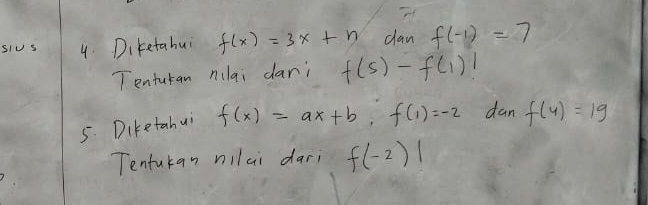 sius
4. Diketahui f(x) = 3x + n dan f(-1) = 7
Tentukan nilai dari f(5) - f(1)!
5. Diketahui f(x) = ax + b, f(1) = -2 dan f(4) = 19
Tentukan nilai dari f(-2)!